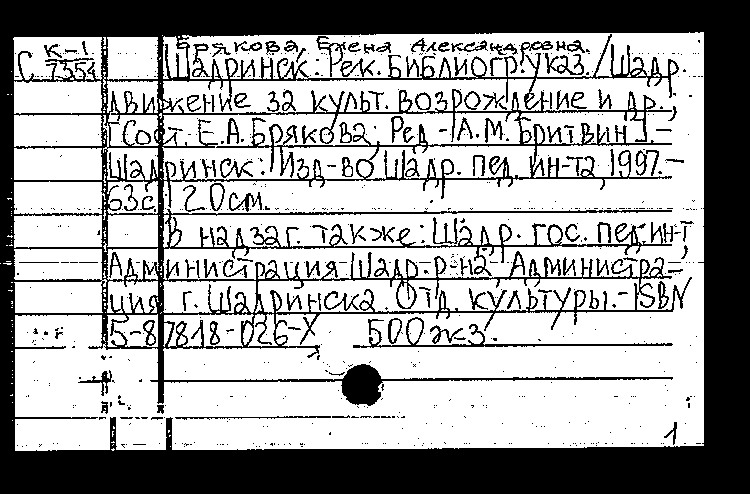 Брякова, Елена Александровна.
С К-1 7354 Шадринск: Рек. библиогр. указ. / Шадр.
движение за культ. возрождение и др.;
[Сост. Е.А. Брякова; Ред. А.М. Бритвин]. –
Шадринск: Изд-во Шадр. пед. ин-та, 1997. –
63с.; 20см.
В надзаг. также: Шадр. гос. пед. ин-т,
Администрация Шадр. р-на, Администра-
ция г. Шадринска. Отд. культуры. – ISBN
5-87818-026-X 500экз.
1